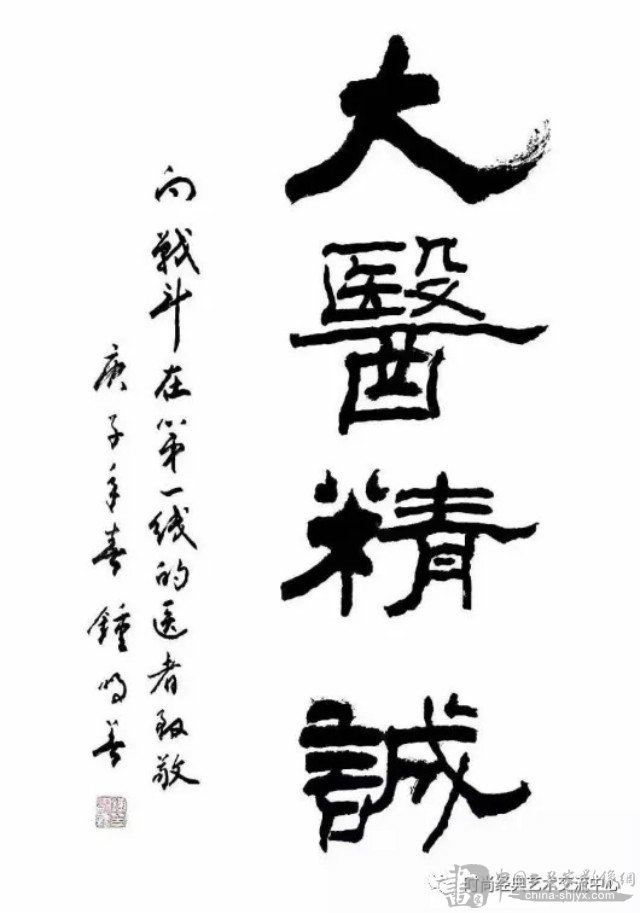 大醫精誠
向戰斗在第一线的医者致敬
庚子年春 鍾明善
时尚经典艺术交流中心
china-shjyx.com